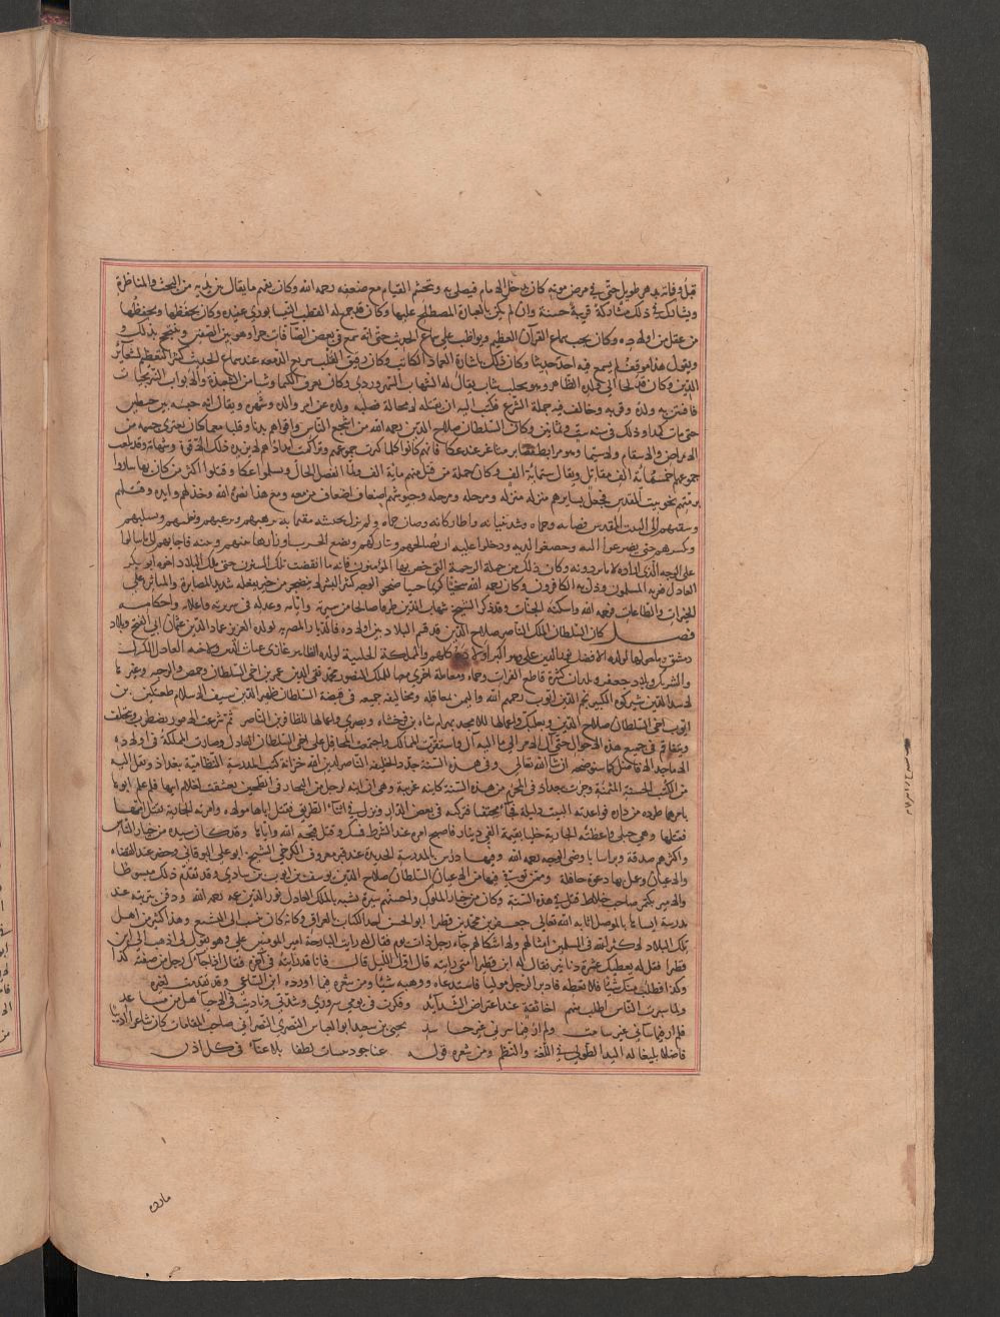 قبل وفاته بدهر طويل حتى في مرض موته كان يدخل الامام فيصلي به وتجشم القيام مع ضعفه رحمه الله وكان يفهم ما يقال بين يديه من البحث والمناظرة
ويشارك في ذلك مشاركة قريبة حسنة وان لم يكن بالعبارة المصطلح عليها وكان قد جمع له القطب النيسابوري عقيدة وكان يحفظها ويحفظها
من عقل من اولاده وكان يحب سماع القرآن العظيم ويواظب على سماع الحديث حتى انه سمع في بعض المصافات جزا وهو بين الصفين ويتبجح بذلك
ويقول هذا موقف لم يسمع فيه احد حديثا وكان ذلك باشارة العماد الكاتب وكان رقيق القلب سريع الدمعة عند سماع الحديث كثير التعظيم لشعائر
الدين وكان قد لجا الى ولده الظاهر وهو بحلب شاب يقال له الشهاب السهروردي وكان يعرف الكيميا وشيا من الشعبذة والابواب النيرنجيات
فافتتن به ولده وقربه وخالف فيه حملة الشرع فكتب اليه ان يقتله لا محالة فصلبه ولده عن امر والده وشهره ويقال انه حبسه بين حيطين
حتى مات كمدا وذلك في سنه ست وثمانين وكان السلطان صلاح الدين رحمه الله من اشجع الناس واقواهم بدنا وقلبا مع ما كان يعتري جسمه من
الامراض والاسقام ولا سيما وهو مرابط مصابر مثاغر عند عكا فانهم كانوا كلما كثرت جموعهم وتراكمت امدادهم لا يزيده ذلك الا قوة وشهامة وقد بلغت
جموعهم خمسمائة الف مقاتل ويقال ستمائة الف وكان جملة من قتل منهم مائة الف ولما انفصل الحال وسلموا عكا وقتلوا اكثر من كان بها ساروا
برمتهم نحو بيت المقدس فجعل يسايرهم منزله منزله ومرحله ومرحله وجيوشهم اضعاف اضعاف من معه ومع هذا نصره الله وخذلهم وايده وقتلهم
وسبقهم الى البيت المقدس فصانه وحماه وشيد بنيانه واطار كانه وصان حماه ولم يزل بجيشه مقيما به يرهبهم ويرعبهم ويغلبهم ويسلبهم
وكسرهم حتى تضرعوا اليه وخضعوا لديه ودخلوا عليه ان يصالحهم ويتاركهم وتضع الحرب اوزارها بينهم وبينه فاجابهم الى ما سالوا
على الوجه الذي اراده لا ما يريدونه وكان ذلك من جملة الرحمة التي خص بها المؤمنون فانه ما انقضت تلك السنون حتى ملك البلاد اخوه ابو بكر
العادل فعز به المسلمون وذل به الكافرون وكان رحمه الله سخيا كريما حييا ضحوك الوجه كثير البشر لا يتضجر من خير يفعله شديد المصابرة والمثابرة على
الخيرات والطاعات فرحمه الله واسكنه الجنات وقد ذكر الشيخ شهاب الدين طرفا صالحا من سيرته وايامه وعدله في سريرته وعلانيته واحكامه
فصل كان السلطان الملك الناصر صلاح الدين قد قسم البلاد بين اولاده فالديار المصريه لولده العزيز عماد الدين عثمان ابي الفتح وبلاد
دمشق وما حولها لولده الافضل نور الدين علي وهو اكبر اولاده كلهم والمملكة الحلبية لولده الظاهر غازي غياث الدين ولاخيه العادل الكرك
والشوبك وبلاد جعبر وبلدان كثيرة قاطع الفرات وحماه ومعاملة اخرى معها للملك المنصور محمد تقي الدين عمر بن اخي السلطان وحمص والرحبه وغيرها
لاسد الدين شيركوه الكبير نجم الدين ايوب رحمهم الله واليمن بمعاقله ومخاليفه جميعه في قبضة السلطان ظهير الدين سيف الاسلام طغتكين بن
ايوب اخي السلطان صلاح الدين وبعلبك واعمالها للامجد بهرام شاه بن فرخشاه وبصرى واعمالها للظافر بن الناصر ثم شرعت الامور تضطرب وتختلف
وتتفاقم في جميع هذه الاحوال حتى آل الامر الى ما اليه آل واستقرت الممالك واجتمعت المحافل على اخي السلطان العادل وصارت المملكة في اولاده
وفي هذه السنة جدد الخليفة الناصر لدين الله خزانة كتب المدرسة النظامية ببغداد ونقل اليه
من الكتب الحسنة المثمنة وجرت ببغداد في المحرم من هذه السنة كاينه غريبة وهي ان ابنة لرجل من التجار في الطحين تعشقت لغلام ابيها فلما علم ابوها
بامرها طرد من داره فواعدته البيت ذات ليلة فجآ مختفيا فتركته في بعض الدار ونزل في اثناء الليل فقتل اباها مولاه وامرته الجارية بقتل امها
فقتلها وهي حبلى واعطته الجارية حليا بقيمة الفي دينار فاصبح امره عند الشرطة فمسك وقتل قبحه الله واياها وقد كان سيده من خيار الناس
واكثرهم صدقة وبرا شابا وضي الوجه رحمه الله وفيها درس بالمدرسة الجديدة عند قبر معروف الكرخي الشيخ ابو علي التوقاني وحضر عنده القضاه
والاعيان وعمل بها دعوة حافلة ومن توفي فيها من الاعيان السلطان صلاح الدين يوسف بن ايوب بن شادي وقد تقدم ذلك مبسوطا
والامير بكتمر صاحب خلاط قتل في هذه السنة وكان من خيار الملوك واحسنهم سيرة تشبه بالملك العادل نور الدين عمه رحمه الله ودفن بتربته عند
مدرسة انشاها بالموصل اثابه الله تعالى جعفر بن محمد بن فطيرا ابو الحسن احد الكتاب بالعراق وكان ينسب الى التشيع وهذا كثير من اهل
تلك البلاد لا كثر الله في المسلمين امثالهم ولا اشكالهم جآه رجل ذات يوم فقال له رايت البارحة امير المومنين علي وهو يقول لي اذهب الى ابن
فطيرا فقل له يعطيك عشرة دنانير فقال له ابن فطيرا متى رايته قال اول الليل قال فانا قد رايته في آخره فقال اذا جآك رجل من صفته كذا
وكذا فطلب منك شيئا فلا تعطه فادبر الرجل موليا فاستدعاه ووهبه شيئا ومن شعره فيما اورده ابن الساعي وقد تقدمت لغيره
ولما سبرت الناس اطلب منهم اخا ثقة عند اعتراض الشدآئد وفكرت في يومي سروري وشدتي وناديت في الاحيآ هل من مساعد
فلم ار فيما ساني غير شامت ولم ار فيما سرني غير حاسد يحيى بن سعيد ابو العباس البصري النصراني صاحب المقامات كان شاعرا أديبا
فاضلا بليغا له اليد الطولى في اللغة والنظم ومن شعره قوله غنا خود ينساب لطفا بلا عنآ في كل اذن